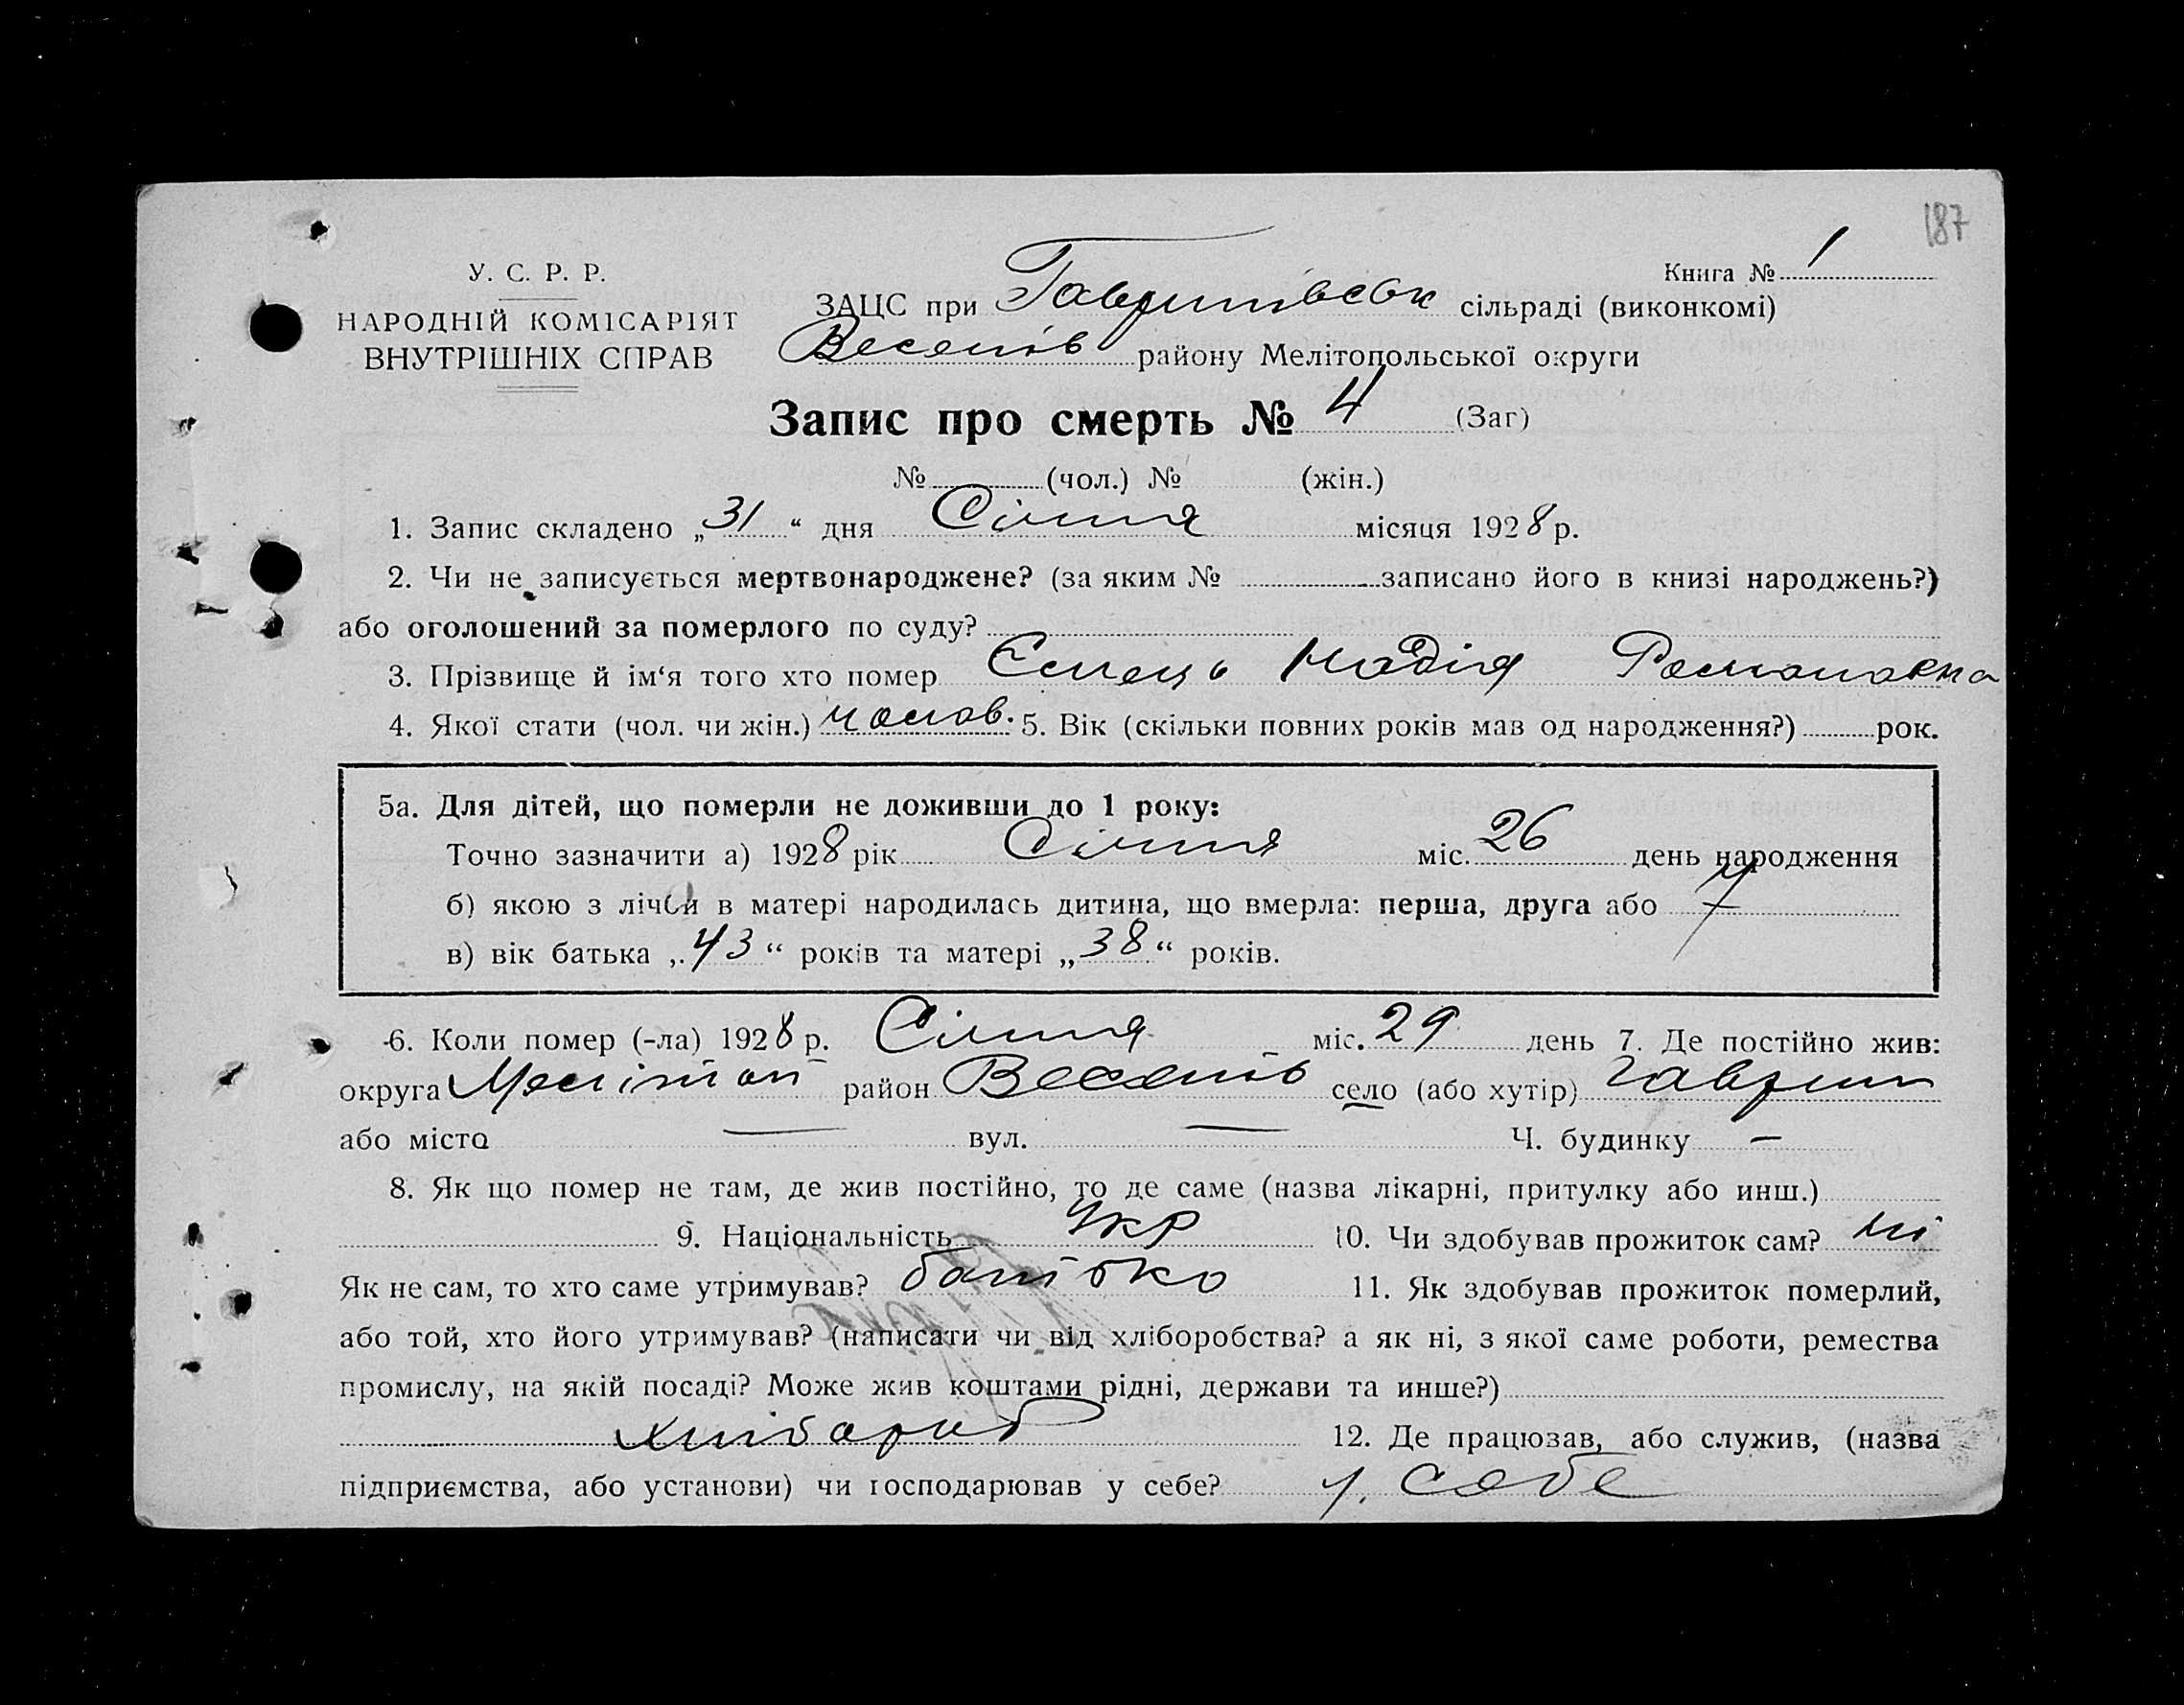 187
У. С. Р. Р.
НАРОДНІЙ КОМІСАРІЯТ
ВНУТРІШНІХ СПРАВ
Книга № 1
ЗАЦС при Гаврилівськ сільраді (виконкомі)
Веселів району Мелітопольської округи
Запис про смерть № 4 (Заг)
№ (чол.) № (жін.)
1. Запис складено „31“ дня Січня місяця 1928 р.
2. Чи не записується мертвонароджене? (за яким № записано його в книзі народжень?)
або оголошений за померлого по суду?
3. Прізвище й ім‘я того хто помер Ємець Надія Романовна
4. Якої стати (чол. чи жін.) чолов. 5. Вік (скільки повних років мав од народження?) рок.
5а. Для дітей, що померли не доживши до 1 року:
Точно зазначити а) 1928 рік Січня міс. 26 день народження
б) якою з лічби в матері народилась дитина, що вмерла: перша, друга або 7
в) вік батька „43“ років та матері „38“ років.
6. Коли помер (-ла) 1928 р. Січня міс. 29 день 7. Де постійно жив:
округа Мелітоп район Веселів село (або хутір) Гаврил
або місто — вул. — Ч. будинку —
8. Як що помер не там, де жив постійно, то де саме (назва лікарні, притулку або инш.)
9. Національність Укр 10. Чи здобував прожиток сам? ні
Як не сам, то хто саме утримував? батько 11. Як здобував прожиток померлий,
або той, хто його утримував? (написати чи від хліборобства? а як ні, з якої саме роботи, ремества
промислу, на якій посаді? Може жив коштами рідні, держави та инше?)
хлібороб 12. Де працював, або служив, (назва
підприємства, або установи) чи господарював у себе? у себе